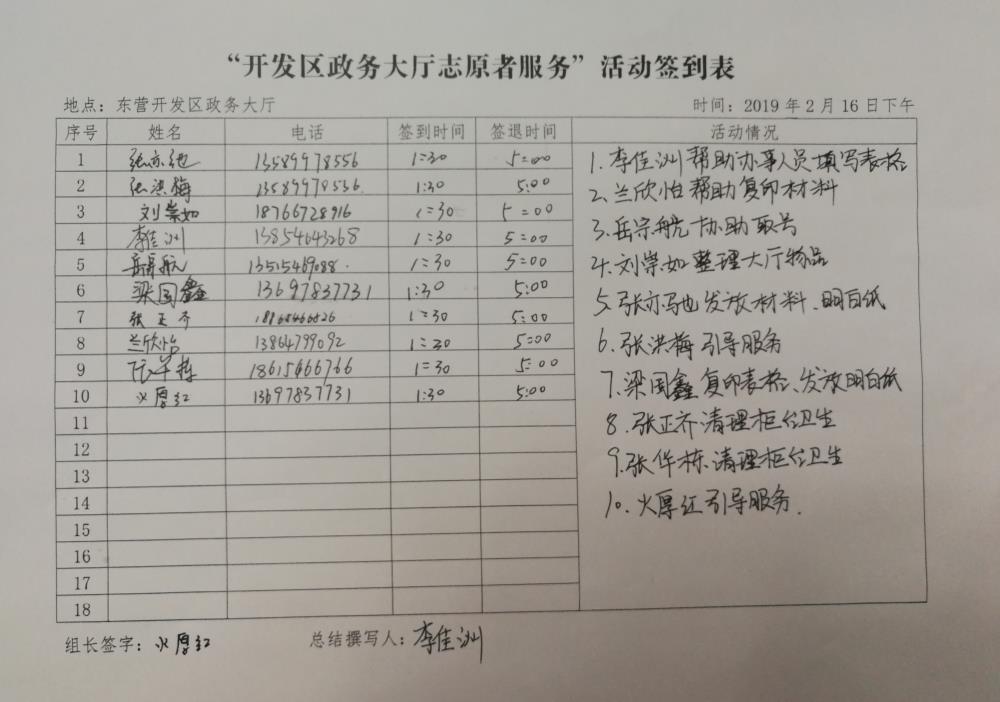 “开发区政务大厅志愿者服务”活动签到表
地点：东营开发区政务大厅 时间：2019年2月16日下午
序号 姓名 电话 签到时间 签退时间 活动情况
1 张亦弛 13589978556 1:30 5:00
2 张洪梅 13589978556 1:30 5:00
3 刘崇如 18766728916 1:30 5:00
4 李佳洲 15854643268 1:30 5:00
5 岳宗航 13515469088 1:30 5:00
6 梁国鑫 13697837731 1:30 5:00
7 张正齐 1:30 5:00
8 兰欣怡 13864799092 1:30 5:00
9 张华栋 18615466766 1:30 5:00
10 火厚红 13697837731 1:30 5:00
11
12
13
14
15
16
17
18
1.李佳洲帮助办事人员填写表格
2.兰欣怡帮助复印材料
3.岳宗航协助取号
4.刘崇如整理大厅物品
5.张亦马也发放材料、明白纸
6.张洪梅引导服务
7.梁国鑫复印表格、发放明白纸
8.张正齐清理柜台卫生
9.张华栋清理柜台卫生
10.火厚红引导服务.
组长签字：火厚红 总结撰写人：李佳洲